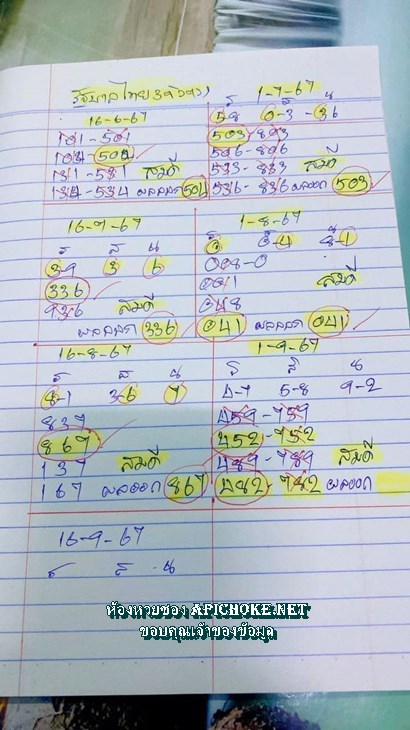 รัฐบาลไทย 3 ตัวตรง
16-6-67
101-501
104-504
131-531 สมดี
134-534 ผลออก 504
1-7-67
ร ส น
58 0-3 - 36
503-803
506-806
533-833 สมดี
536-836 ผลออก 503
16-7-67
ร ส น
39 3 6
336
936 สมดี
ผลออก 336
1-8-67
ร ส น
0 0-4 8-1
008-0
001 สมดี
048
041 ผลออก 041
16-8-67
ร ส น
8-1 3-6 7
837
867
137 สมดี
167 ผลออก 867
1-9-67
ร ส น
4-7 5-8 9-2
459-759
452-752
489-789 สมดี
482-782 ผลออก
16-9-67
ร ส น
ห้องหวยซอง APICHOKE.NET
ขอบคุณเจ้าของข้อมูล